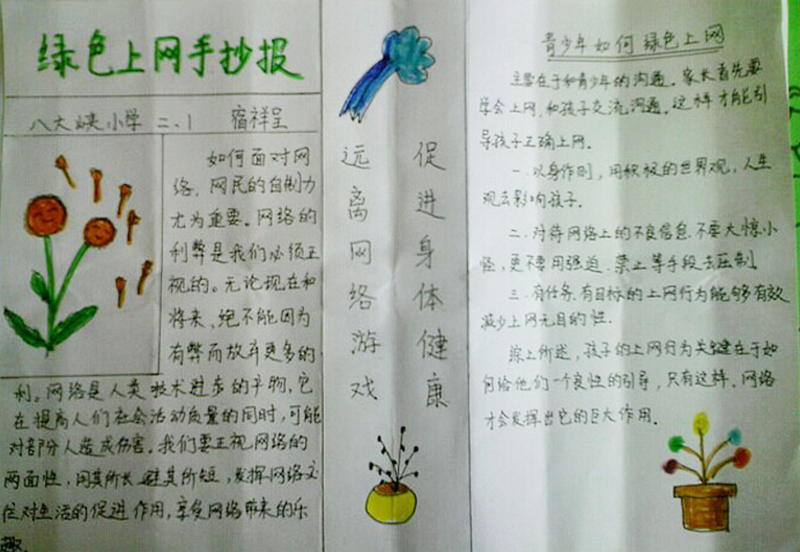 绿色上网手抄报
八大峡小学 二、1 宿祥呈
如何面对网
络，网民的自制力
尤为重要。网络的
利弊是我们必须正
视的。无论现在和
将来，绝不能因为
有弊而放弃更多的
利。网络是人类技术进步的产物，它
在提高人们社会活动质量的同时，可能
对部分人造成伤害。我们要正视网络的
两面性，用其所长，避其所短，发挥网络交
往对生活的促进作用，享受网络带来的乐
趣。
促进身体健康
远离网络游戏
青少年如何绿色上网
主要在于和青少年的沟通。家长首先要
学会上网，和孩子交流沟通。这样才能引
导孩子正确上网。
一.以身作则，用积极的世界观，人生
观去影响孩子。
二.对待网络上的不良信息.不要大惊小
怪，更不要用强迫.禁止等手段去压制
三.有任务.有目标的上网行为能够有效
减少上网无目的性.
综上所述，孩子的上网行为关键在于如
何给他们一个良性的引导，只有这样.网络
才会发挥出它的巨大作用.